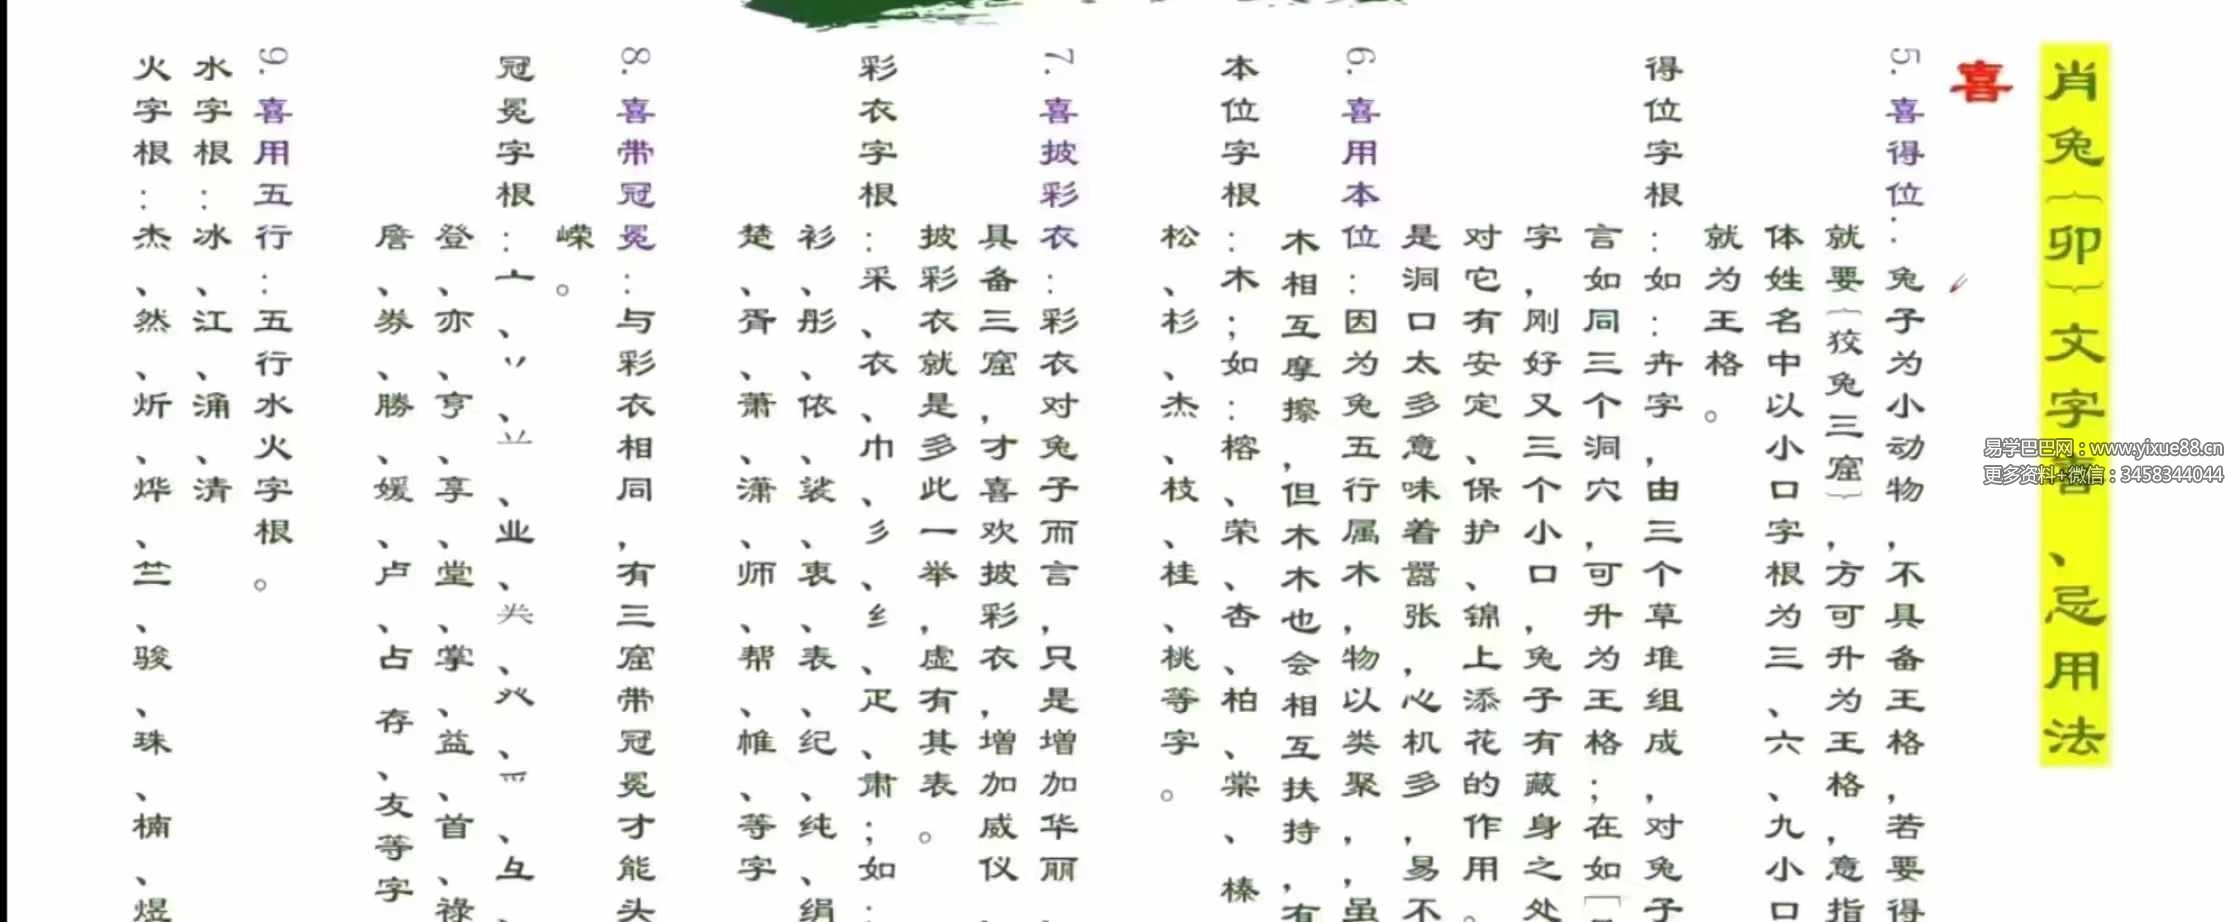 肖兔（卯）文字喜、忌用法
喜
5. 喜得位：兔子为小动物，不具备王格，若要得
就要（狡兔三窟），方可升为王格，意指
体姓名中以小口字根为三、六、九小口
就为王格。
得位字根：如：卉字，由三个草堆组成，对兔子
言如同三个洞穴，可升为王格；在如
字，刚好又三个小口，兔子有藏身之处
对它有安定、保护、锦上添花的作用。
是洞口太多意味着嚣张，心机多，易不
6. 喜用本位：因为兔五行属木，物以类聚，虽
木相互摩擦，但木木也会相互扶持，有
本位字根：木；如：榕、荣、杏、柏、棠、榛
松、杉、杰、枝、桂、桃等字。
7. 喜披彩衣：彩衣对兔子而言，只是增加华丽
具备三窟，才喜欢披彩衣，增加威仪，
披彩衣就是多此一举，虚有其表。
彩衣字根：采、衣、巾、彡、纟、疋、肃；如：
衫、彤、依、裟、衷、表、纪、纯、绢
楚、胥、萧、潇、师、帮、帷、等字
8. 喜带冠冕：与彩衣相同，有三窟带冠冕才能头
嵘。
冠冕字根：亠、丷、䒑、业、龸、癶、爫、彑、
登、亦、亨、享、堂、掌、益、首、禄
詹、券、勝、媛、卢、占、存、友等字
9. 喜用五行：五行水火字根。
水字根：冰、江、涌、清
火字根：杰、然、炘、烨、竺、骏、珠、楠、煜
易学巴巴网：www.yixue88.cn
更多资料+微信：3458344044